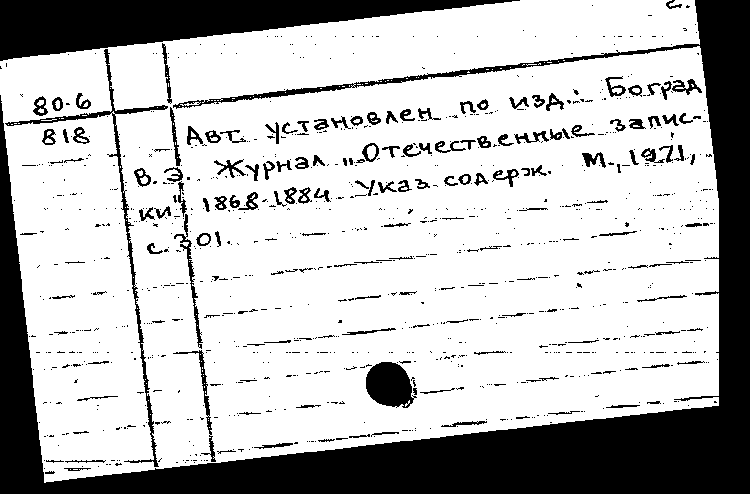 2.
80-6
818
Авт. установлен по изд.: Боград
В.Э. Журнал „Отечественные запис-
ки" 1868-1884 Указ. содерж. М., 1971,
с. 301.